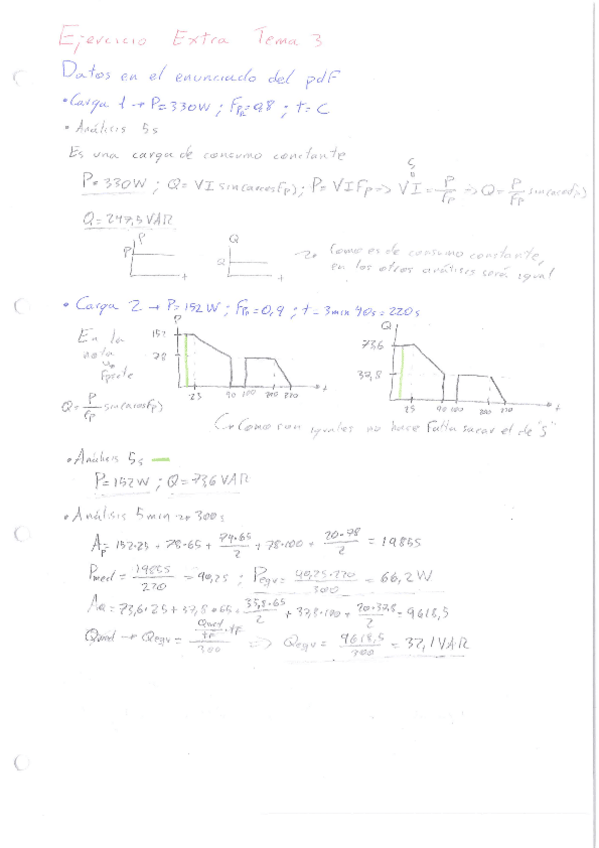 Ejercicio Extra Tema 3
Datos en el enunciado del pdf
• Carga 1 → P=330W ; Fp=0,8 ; t=C
• Análisis 5s
Es una carga de consumo constante
P=330W ; Q=VI sin(arcosFp) ; P=VIFp => VI=P/Fp => Q=P/Fp sin(arcosFp)
S
Q=247,5VAR
P P t
Q Q t
Como es de consumo constante, en los otros análisis será igual
• Carga 2 → P=152W ; Fp=0,9 ; t=3min 40s=220s
En la nota
Q=P/Fp sin(arcosFp)
P 152 78 25 90 100 200 220 t
Q 73,6 37,8 25 90 100 200 220 t
Como son iguales no hace falta sacar el de "S"
• Análisis 5s
P=152W ; Q=73,6VAR
• Análisis 5min → 300s
Ap=152·25+78·65+74·65/2+78·100+20·78/2=19855
Pmed=19855/220=90,25 ; Pequ=90,25·220/300=66,2W
AQ=73,6·25+37,8·65+35,8·65/2+37,8·100+20·37,8/2=9618,5
Qmed → Qequ= /300 => Qequ=9618,5/300=32,1VAR